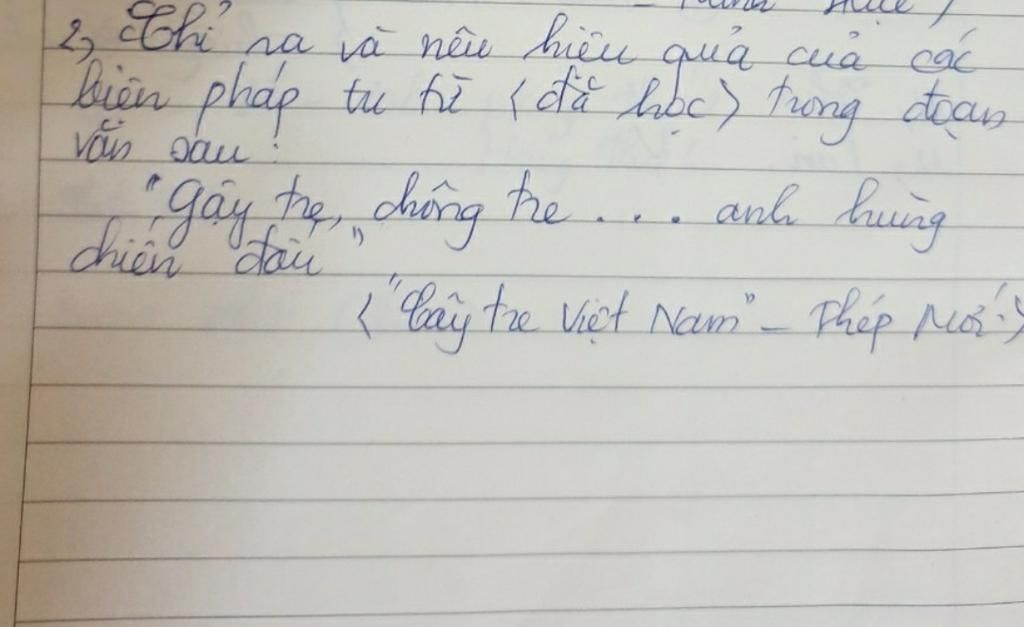 2, Chỉ ra và nêu hiệu quả của các
biện pháp tu từ (đã học) trong đoạn
văn sau:
"Gậy tre, chông tre .... anh hùng
chiến đấu"
("Cây tre Việt Nam" - Thép Mới)